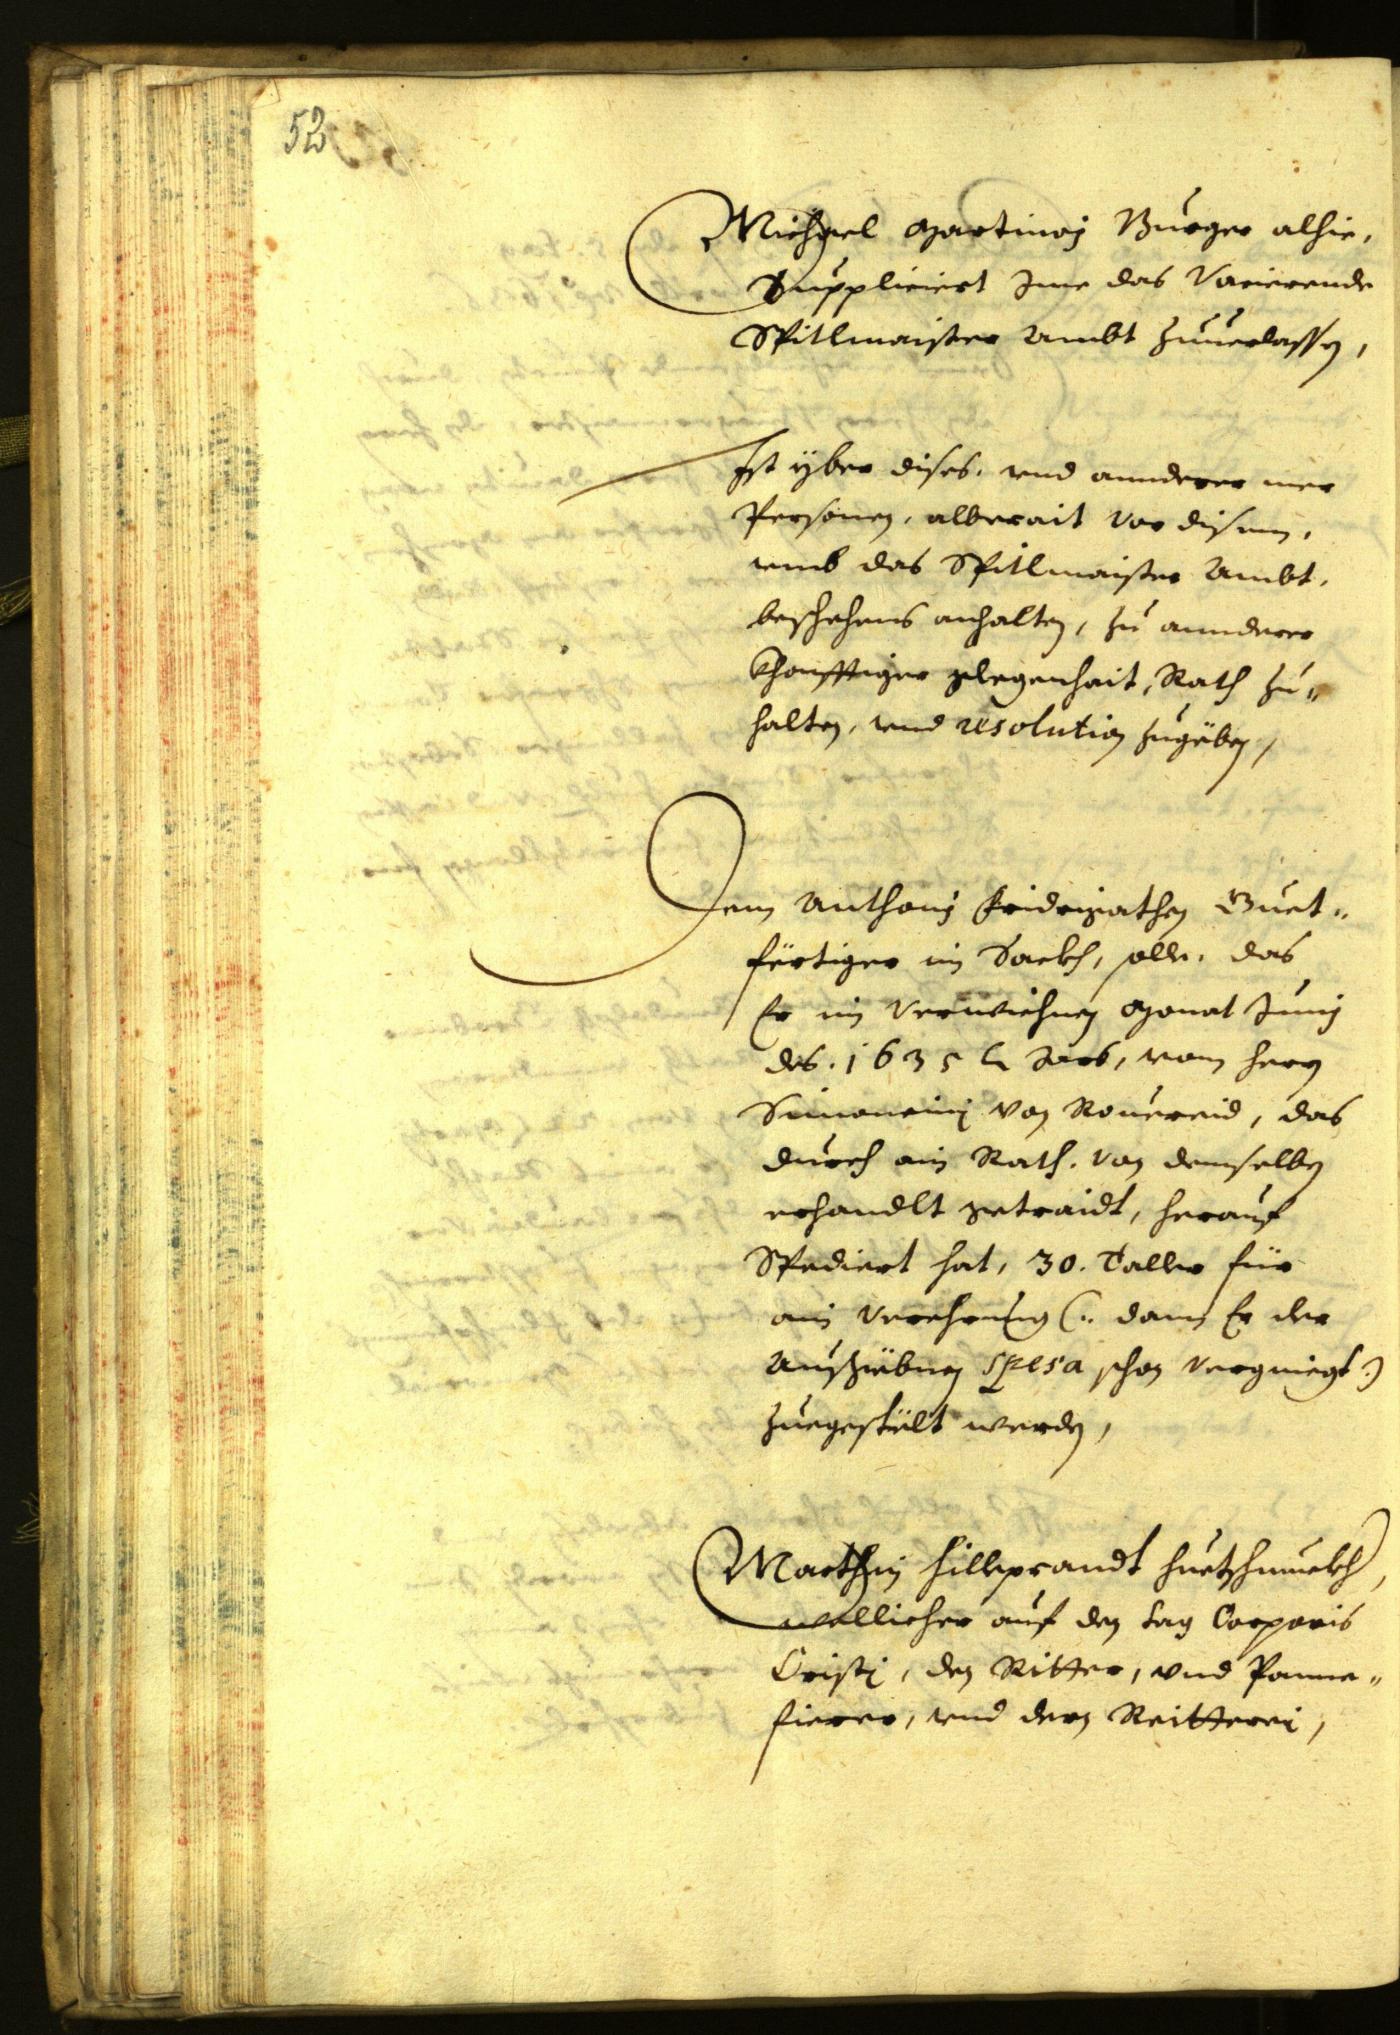 52
Michael Martinoj Burger alhie,
Suppliciert Jme das Vacierende
Spitlmaister Ambt zuuerlassen,
Ist yber dises, vnd annderer mer
Personen, alberait vor disem,
vmb das Spitlmaister Ambt,
beschehens anhalten, zu annderer
khonfftiger gelegenhait, Rath zu„
halten, vnd resolution zugeben,
Dem Anthonj Guet„
fertiger in Sackh, solle, das
Er in verwichnen Monat Junij
des. 1635 Jars, vom herrn
Simoninj von Rouereid, das
durch ain Rath. von demselben
erhandlt getraidt, herauf
Spediert hat, 30. Taller für
ain Verehrung (: dann Er der
Ausgebnen spesa schon vergniegt :)
zuegestelt werden,
Marthin Hilleprandt huetschmuckh,
wellicher auf den tag Corporis
Cristj, den Ritter, vnd Panne„
fierer, vnd dern Reitterei,